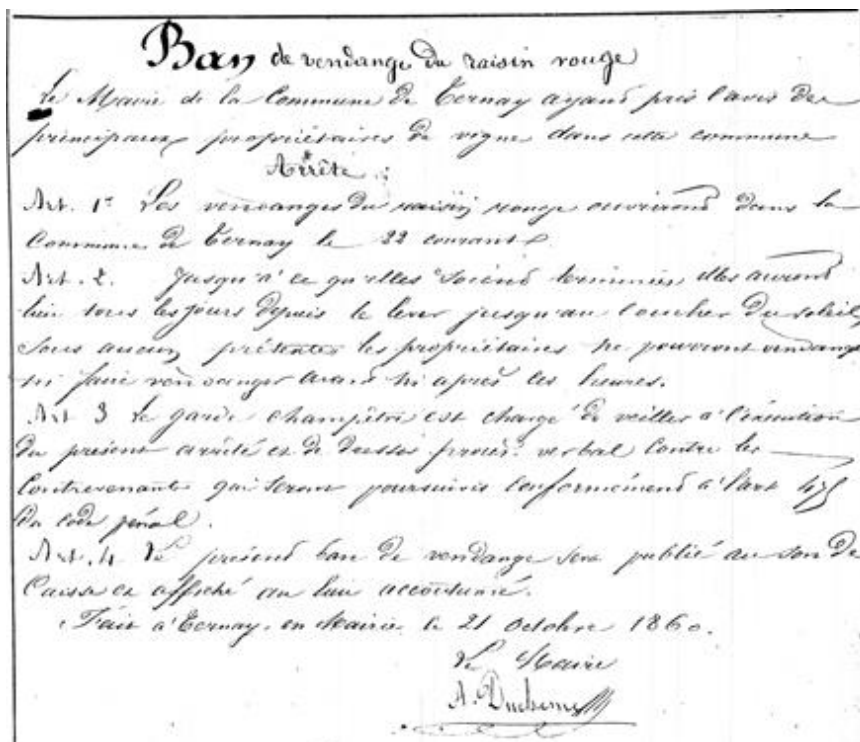 Ban de vendange du raisin rouge
Le Maire de la Commune de Ternay ayant pris l'avis des
principaux propriétaires de vigne dans cette commune
Arrête :
Art. 1er Les vendanges du raisin rouge ouvriront dans la
Commune de Ternay le 22 courant.
Art. 2. Jusqu'à ce qu'elles soient terminées elles auront
lieu tous les jours depuis le lever jusqu'au coucher du soleil,
sous aucun prétexte les propriétaires ne pourront vendanger
ni faire vendanger avant ni après ces heures.
Art 3 Le garde champêtre est chargé de veiller à l'exécution
du présent arrêté et de dresser procès-verbal contre les
Contrevenants qui seront poursuivis conformément à l'art 475
du code pénal.
Art. 4 Le présent ban de vendange sera publié au son de
Caisse et affiché au lieu accoutumé.
Fait à Ternay, en Mairie le 21 octobre 1860.
Le Maire
A. Duchesne